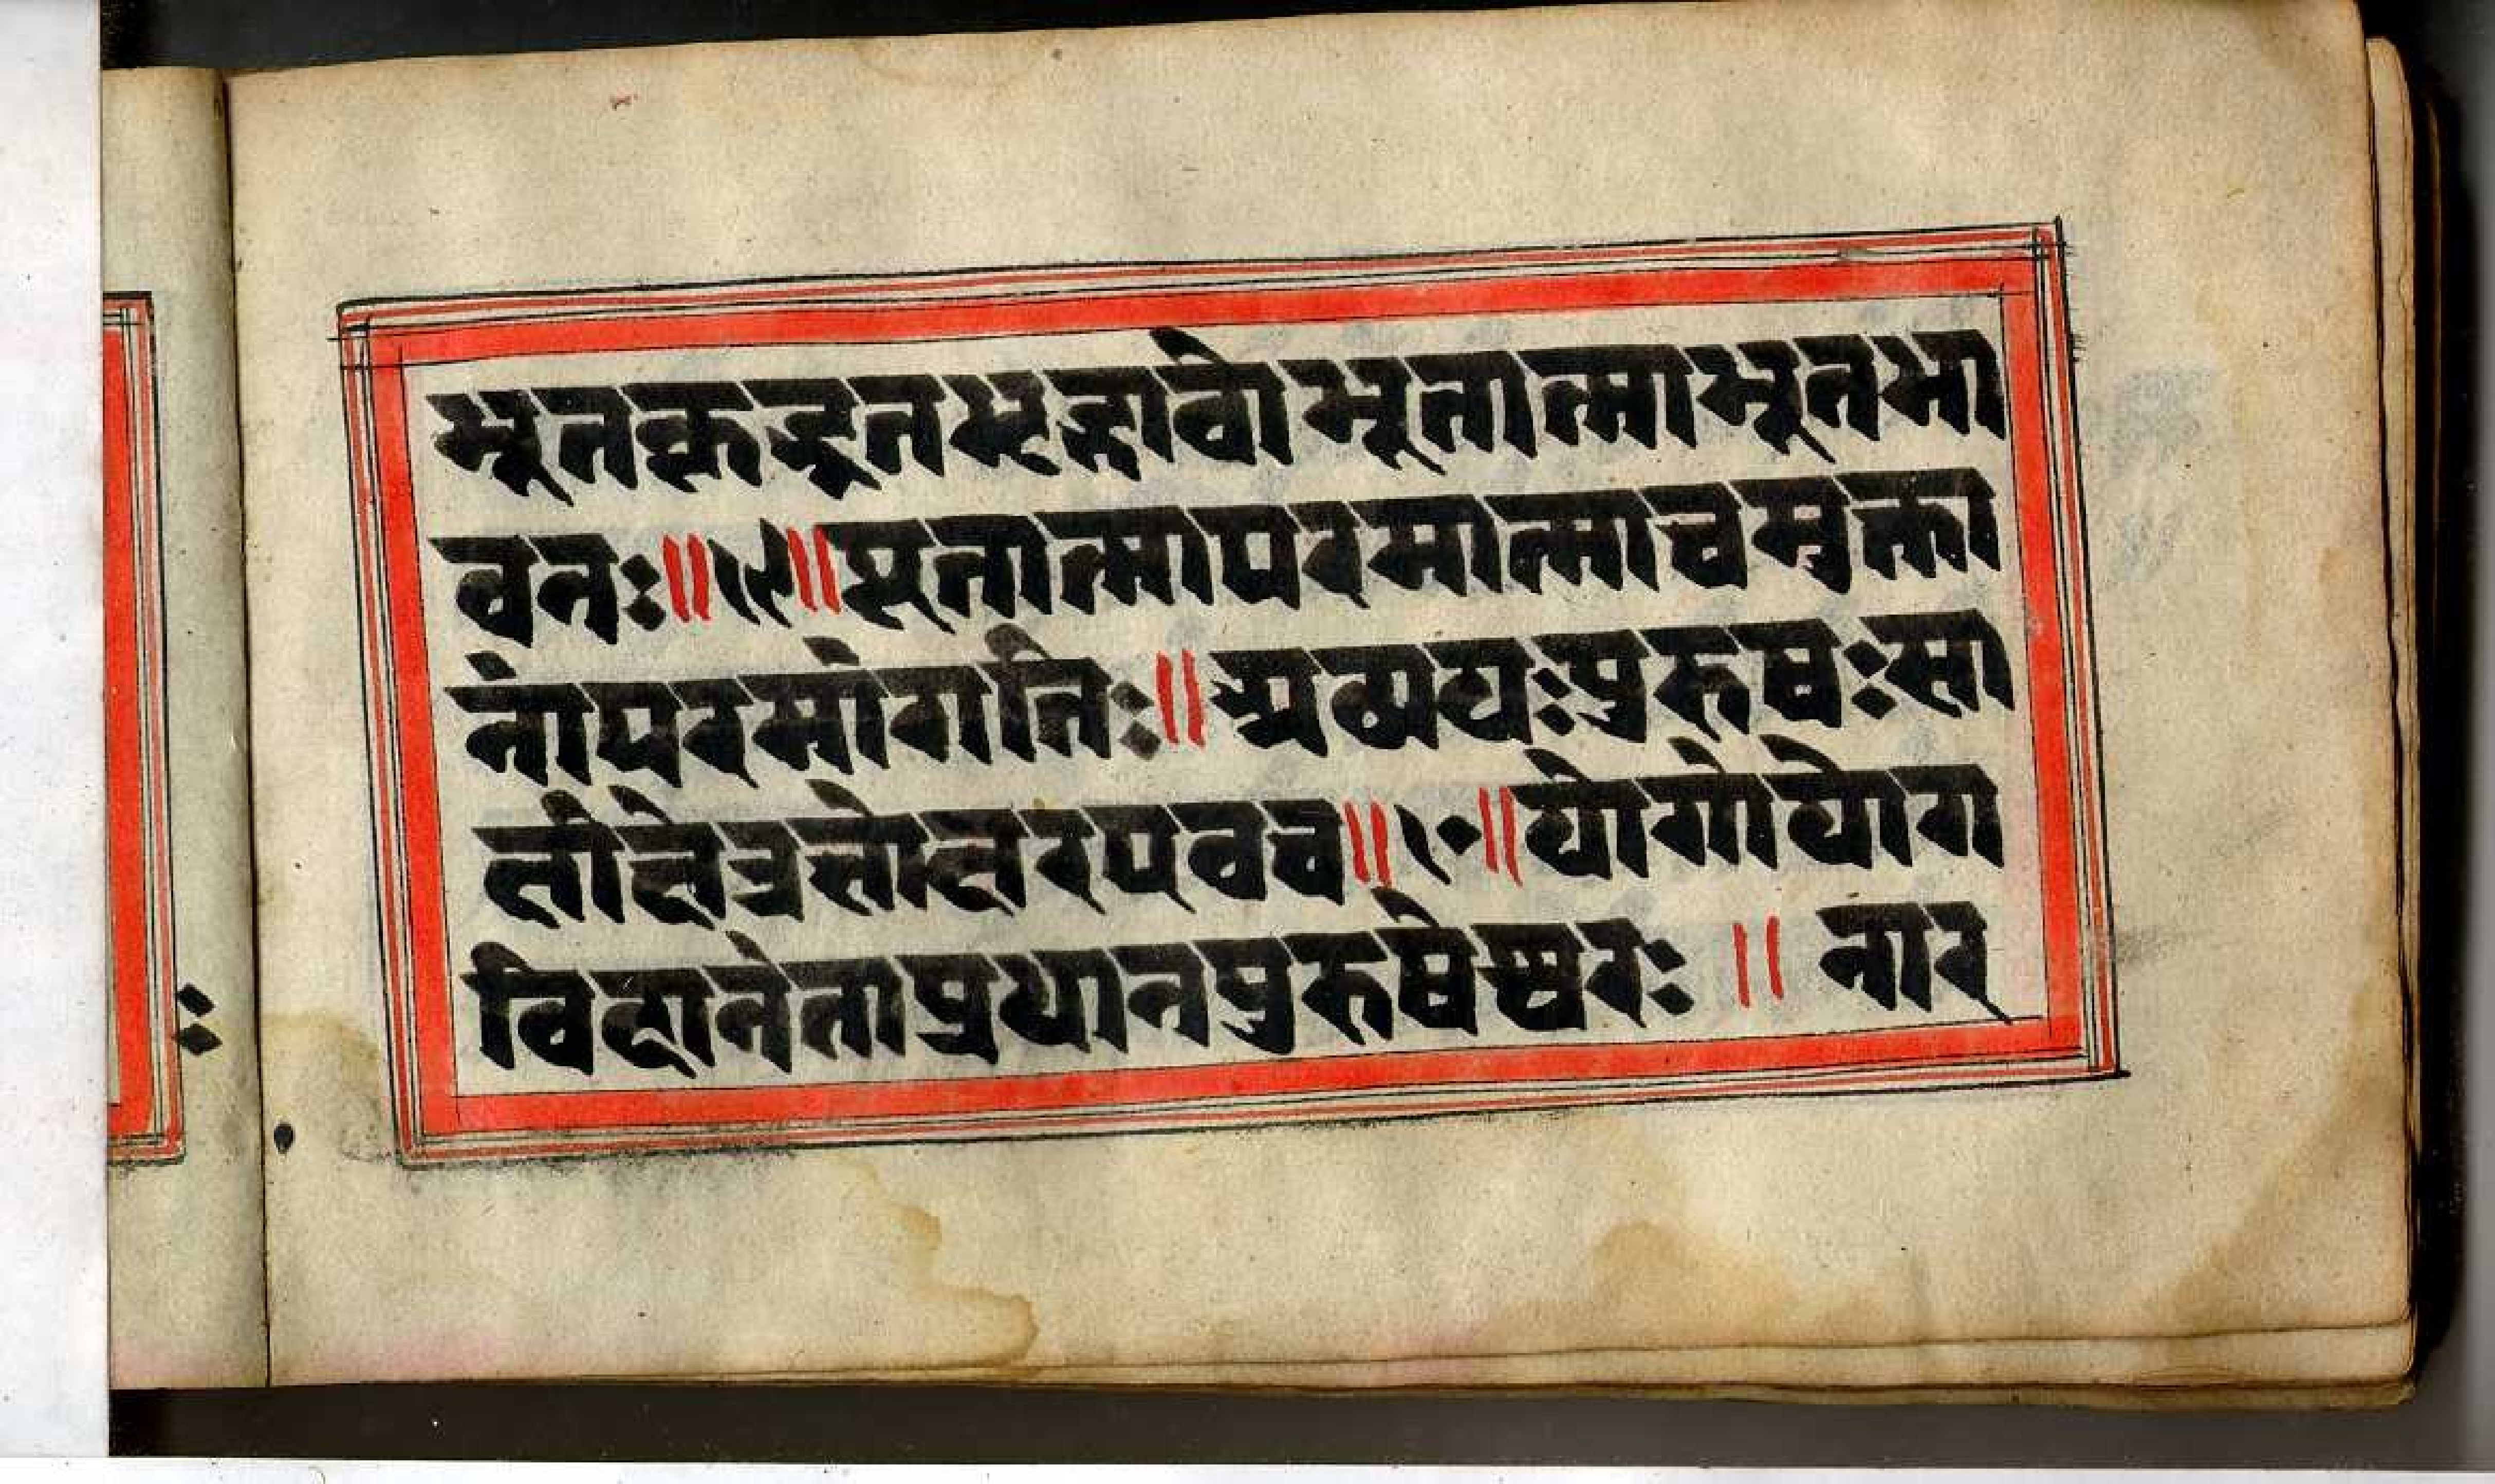 भूतकृद्भूतभृद्भावो भूतात्माभूतभा
वनः॥९॥पूतात्मापरमात्माचमुक्ता
नांपरमांगतिः॥अव्ययःपुरुषःसा
क्षीक्षेत्रज्ञोक्षरएवच॥१०॥योगोयोग
विदांनेताप्रधानपुरुषेश्वरः ॥ नार